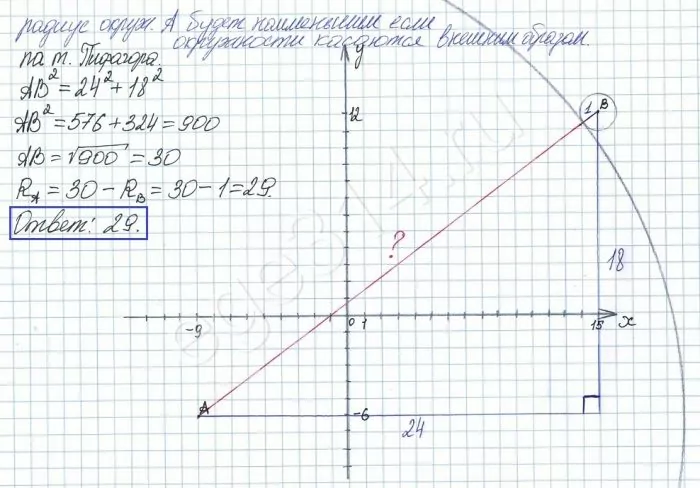 радиус окруж. A будет наименьшим если
окружности касаются внешним образом.
по т. Пифагора.
AB² = 24² + 18²
AB² = 576 + 324 = 900
AB = √900 = 30
R_A = 30 − R_B = 30 − 1 = 29.
Ответ: 29.
y
12
1 B
?
18
-9
0 1
15 x
A
-6
24
ege314.ru